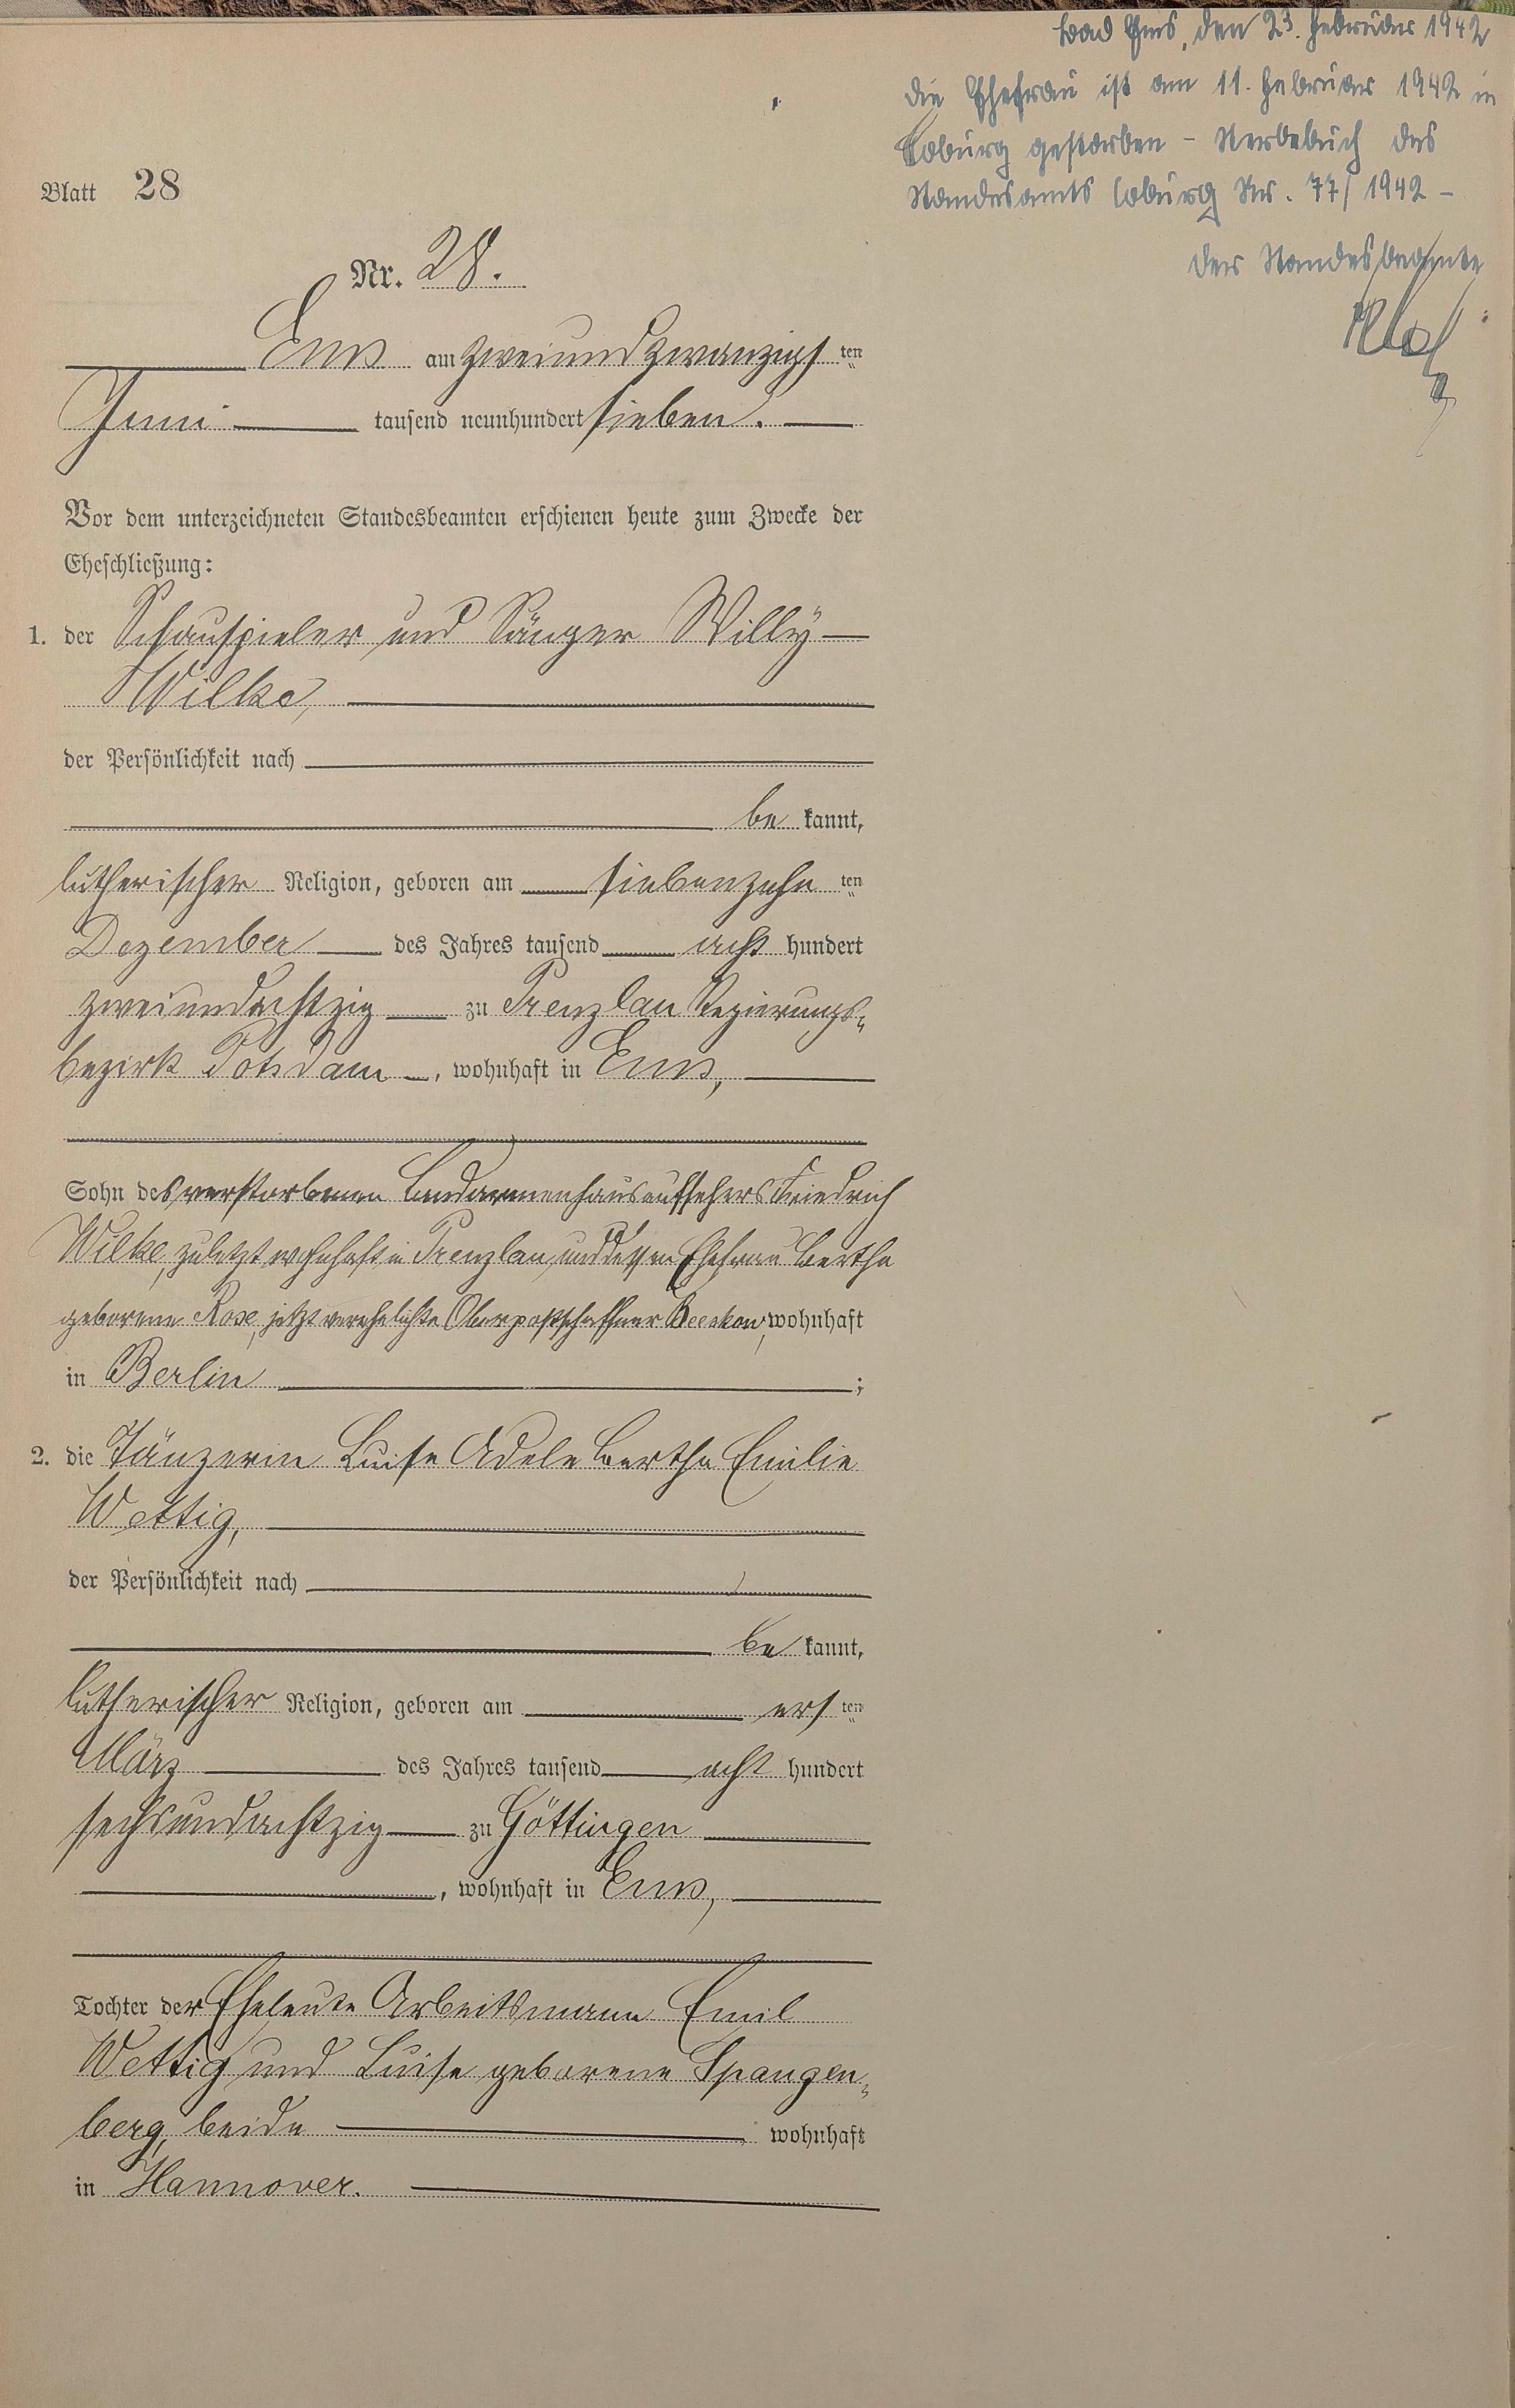 Bad Ems, den 23. Februar 1942
die Ehefrau ist am 11. Februar 1942 in
Coburg gestorben - Sterbebuch des
Standesamts Coburg Nr. 77/1942 -
Der Standesbeamte
Blatt 28
Nr. 28.
Ems am zweiundzwanzigsten
Juni tausend neunhundert sieben.
Vor dem unterzeichneten Standesbeamten erschienen heute zum Zwecke der
Eheschließung:
1. der Schauspieler und Sänger Willy
Wilke,
der Persönlichkeit nach
be kannt,
lutherischer Religion, geboren am siebenzehn ten
Dezember des Jahres tausend acht hundert
zweiundachtzig zu Prenzlau Regierungs-
bezirk Potsdam, wohnhaft in Ems,
Sohn des verstorbenen Landarmenhausaufsehers Friedrich
Wilke, zuletzt wohnhaft in Prenzlau und dessen Ehefrau Bertha
geborene Rose, jetzt verehelichte Oberpostschaffner Beeskow, wohnhaft
in Berlin ;
2. die Tänzerin Luise Adele Bertha Emilie
Wettig,
der Persönlichkeit nach
be kannt,
lutherischer Religion, geboren am ers ten
März des Jahres tausend acht hundert
sechsundachtzig zu Göttingen
, wohnhaft in Ems,
Tochter der Eheleute Arbeitsmann Emil
Wettig und Luise geborene Spangen-
berg, beide wohnhaft
in Hannover.